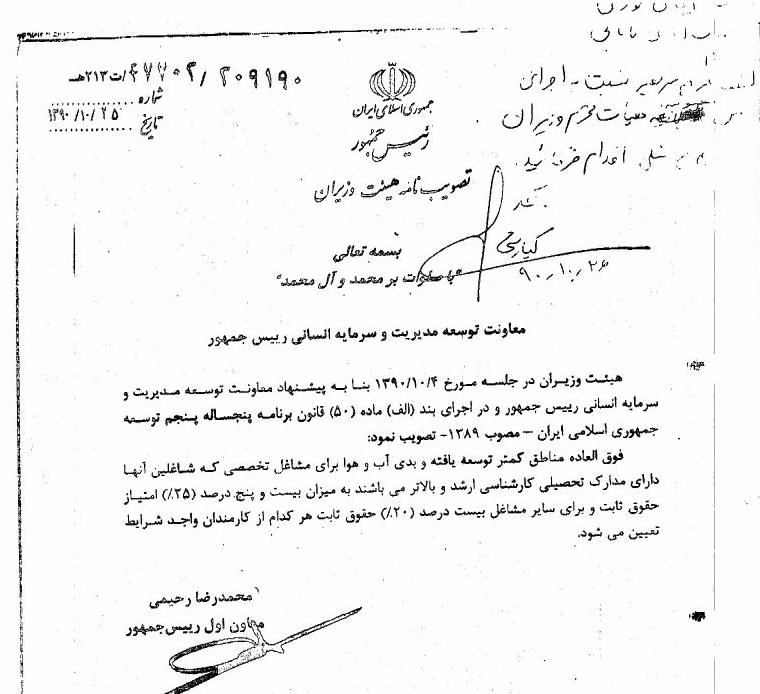 ۲۰۹۱۹۰/ت۴۷۷۰۲هـ
شماره
تاریخ ۱۳۹۰/۱۰/۲۵
جمهوری اسلامی ایران
رئیس جمهور
تصویب نامه هیئت وزیران
نسبت به اجرای
محترم وزیران
اقدام فرمائید.
۹۰،۱۰،۲۶
بسمه تعالی
"با صلوات بر محمد و آل محمد"
معاونت توسعه مدیریت و سرمایه انسانی رییس جمهور
هیئت وزیران در جلسه مورخ ۱۳۹۰/۱۰/۴ بنا به پیشنهاد معاونت توسعه مدیریت و
سرمایه انسانی رییس جمهور و در اجرای بند (الف) ماده (۵۰) قانون برنامه پنجساله پنجم توسعه
جمهوری اسلامی ایران – مصوب ۱۳۸۹- تصویب نمود:
فوق العاده مناطق کمتر توسعه یافته و بدی آب و هوا برای مشاغل تخصصی که شاغلین آنها
دارای مدارک تحصیلی کارشناسی ارشد و بالاتر می باشند به میزان بیست و پنج درصد (۲۵٪) امتیاز
حقوق ثابت و برای سایر مشاغل بیست درصد (۲۰٪) حقوق ثابت هر کدام از کارمندان واجد شرایط
تعیین می شود.
محمدرضا رحیمی
معاون اول رییس جمهور